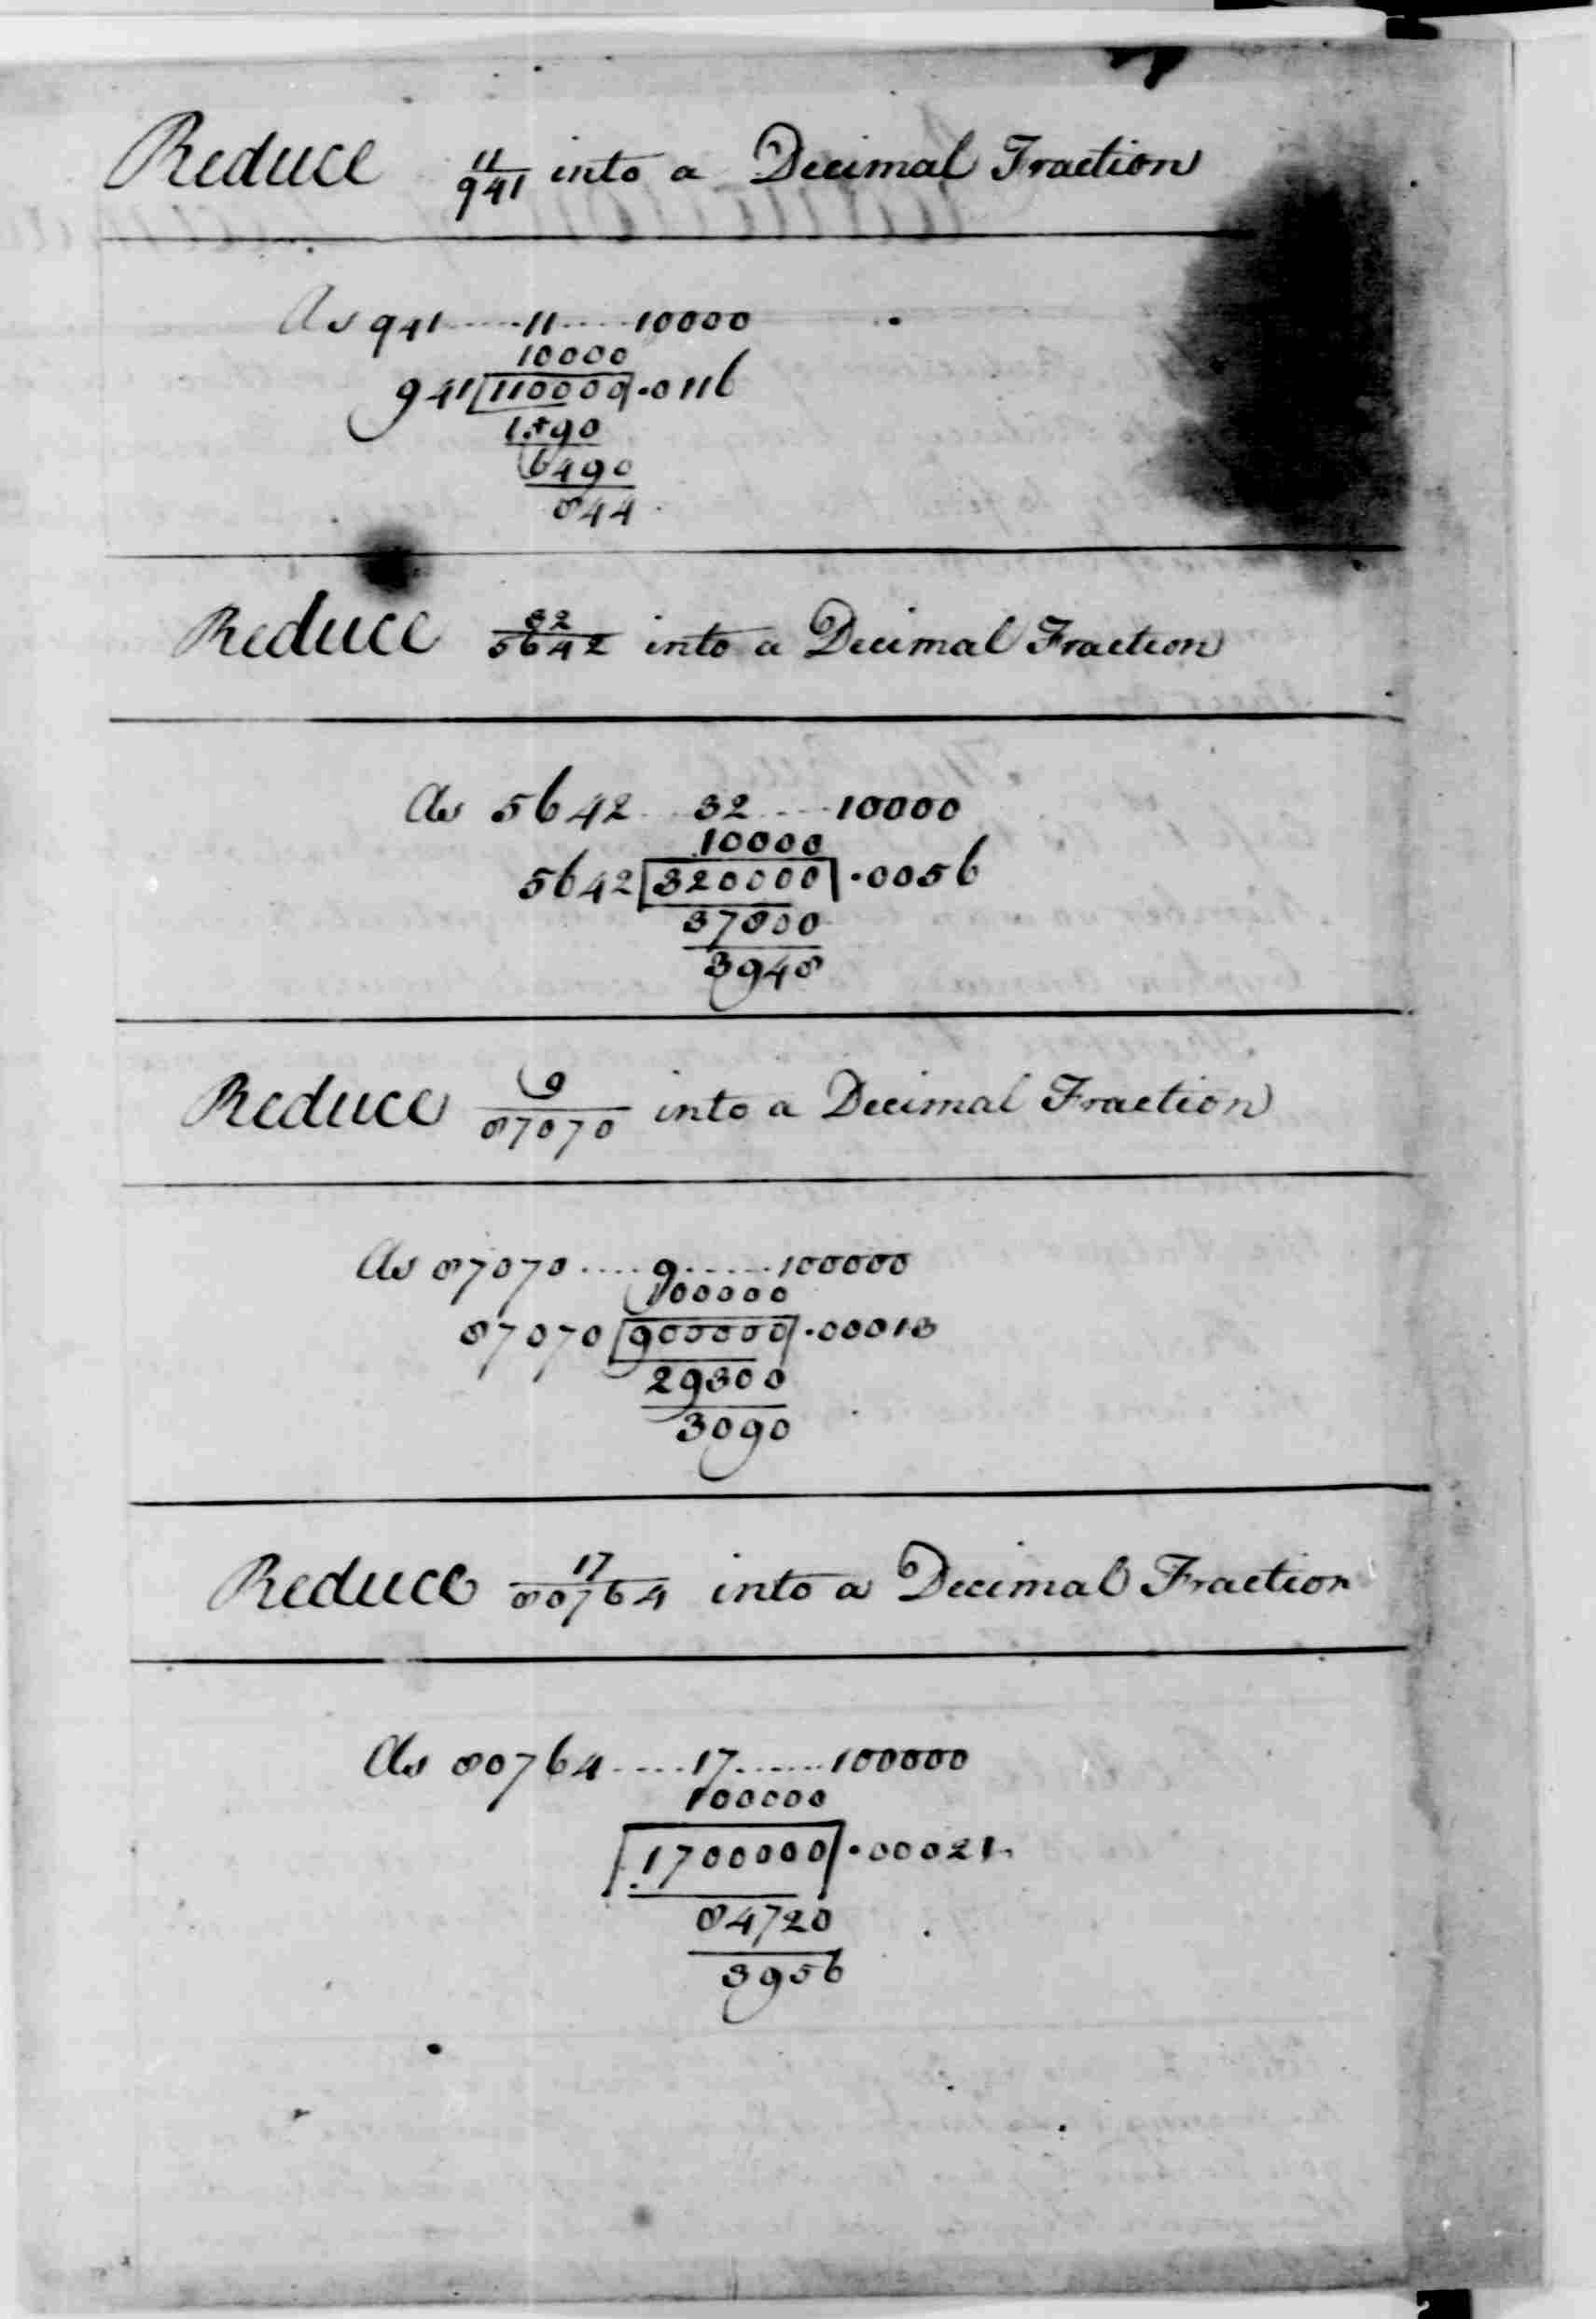 Reduce 11/941 into a Decimal Fraction
As 941.....11.....10000
10000
941 110000 .0116
1590
6490
844
Reduce 32/5642 into a Decimal Fraction
As 5642...32....10000
10000
5642 320000 .0056
37800
3948
Reduce 9/87070 into a Decimal Fraction
As 87070....9......100000
100000
87070 900000 .00013
29300
3090
Reduce 17/80764 into a Decimal Fraction
As 80764.....17......100000
100000
1700000 .00021
84720
3956